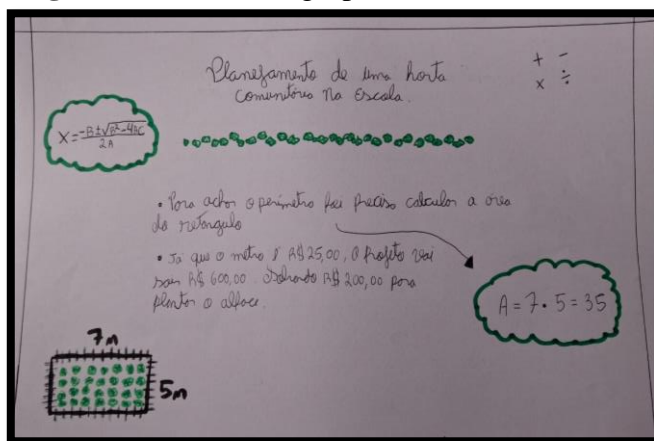 Planejamento de uma horta
comunitária na Escola.
+ -
x ÷
X = -B±√B²-4AC
2A
• Para achar o perímetro foi preciso calcular a área
do retangulo
• Já que o metro é R$25,00, o projeto vai
sair R$ 600,00. Sobrando R$ 200,00 para
plantar o alface.
A = 7 . 5 = 35
7m
5m